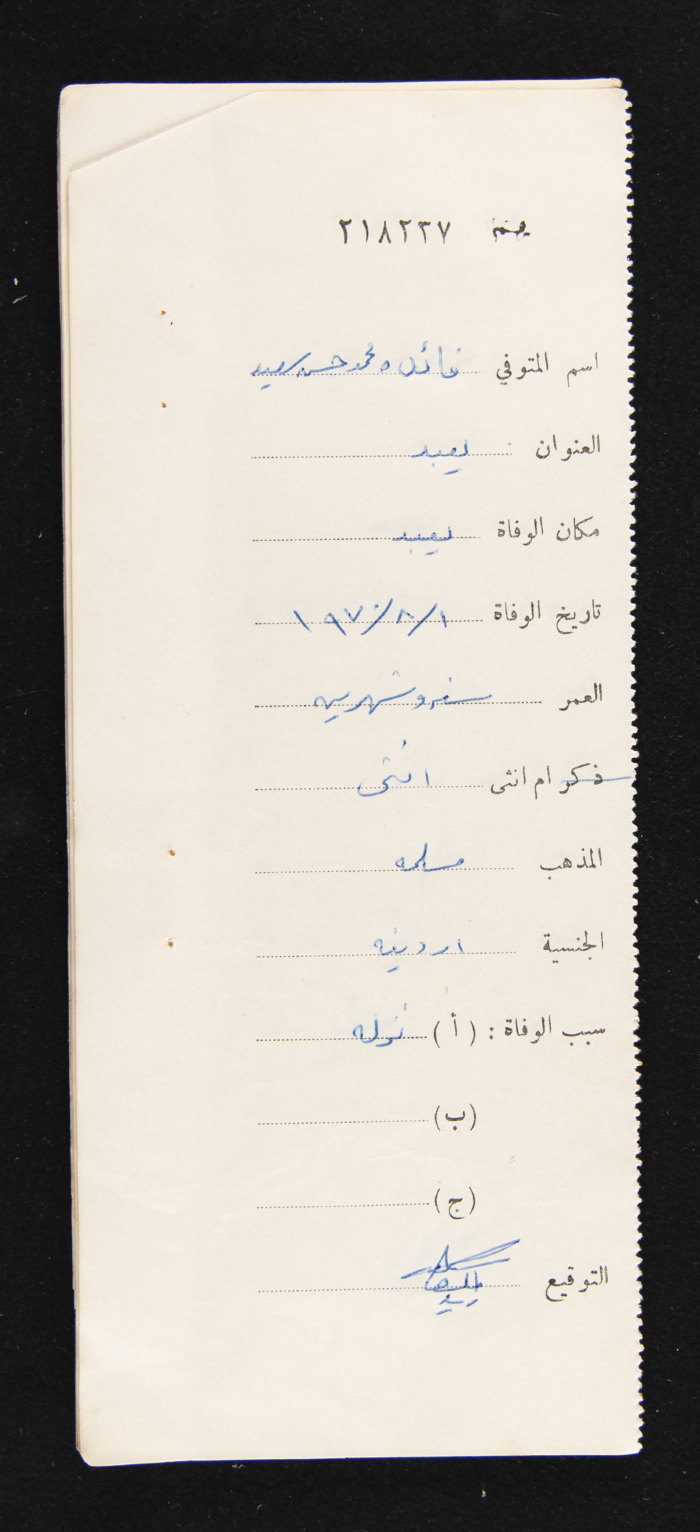 ٢١٨٢٣٧
اسم المتوفي فائده محمد حسن سعيد
العنوان يعبد
مكان الوفاة يعبد
تاريخ الوفاة ١/٨/١٩٧٠
العمر سنه وشهرين
ذكر ام انثى انثى
المذهب مسلمه
الجنسية اردنيه
سبب الوفاة : ( أ ) نزله
(ب)
(ج)
التوقيع